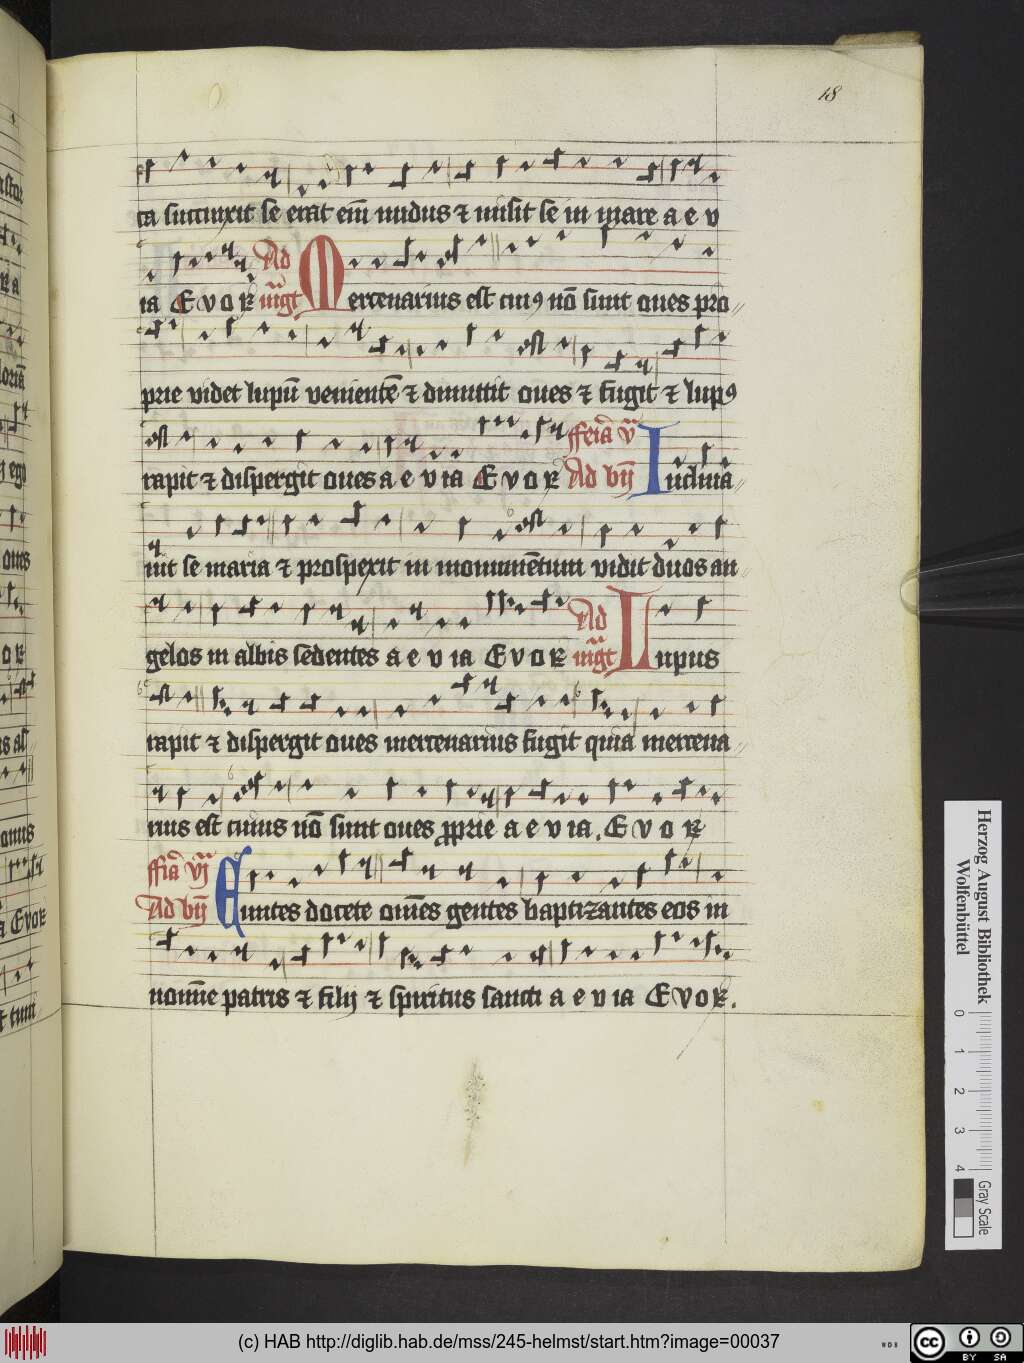 18
ta succinxit se erat eni nudus ⁊ misit se in mare a e v
ia E v o R Ad m̄gt Mercenarius est cuiꝰ nō sunt oues pro
prie videt lupū venientē ⁊ dimittit oues ⁊ fugit ⁊ lupꝰ
rapit ⁊ dispergit oues a e v ia E v o R ffeīa v̄ Ad bn̄ Inclina
uit se maria ⁊ prospexit in monumētum vidit duos an
gelos in albis sedentes a e v ia E v o R Ad m̄gt Lupus
rapit ⁊ dispergit oues mercenarius fugit quia mercena
rius est cuius nō sunt oues ꝓprie a e v ia . E v o R
ffīa vj Ad bn̄ Euntes docete om̄es gentes baptizantes eos in
nomīe patris ⁊ filij ⁊ spiritus sancti a e v ia E v o R .
Herzog August Bibliothek
Wolfenbüttel
0 1 2 3 4
Gray Scale
(c) HAB http://diglib.hab.de/mss/245-helmst/start.htm?image=00037
WDB
CC BY SA